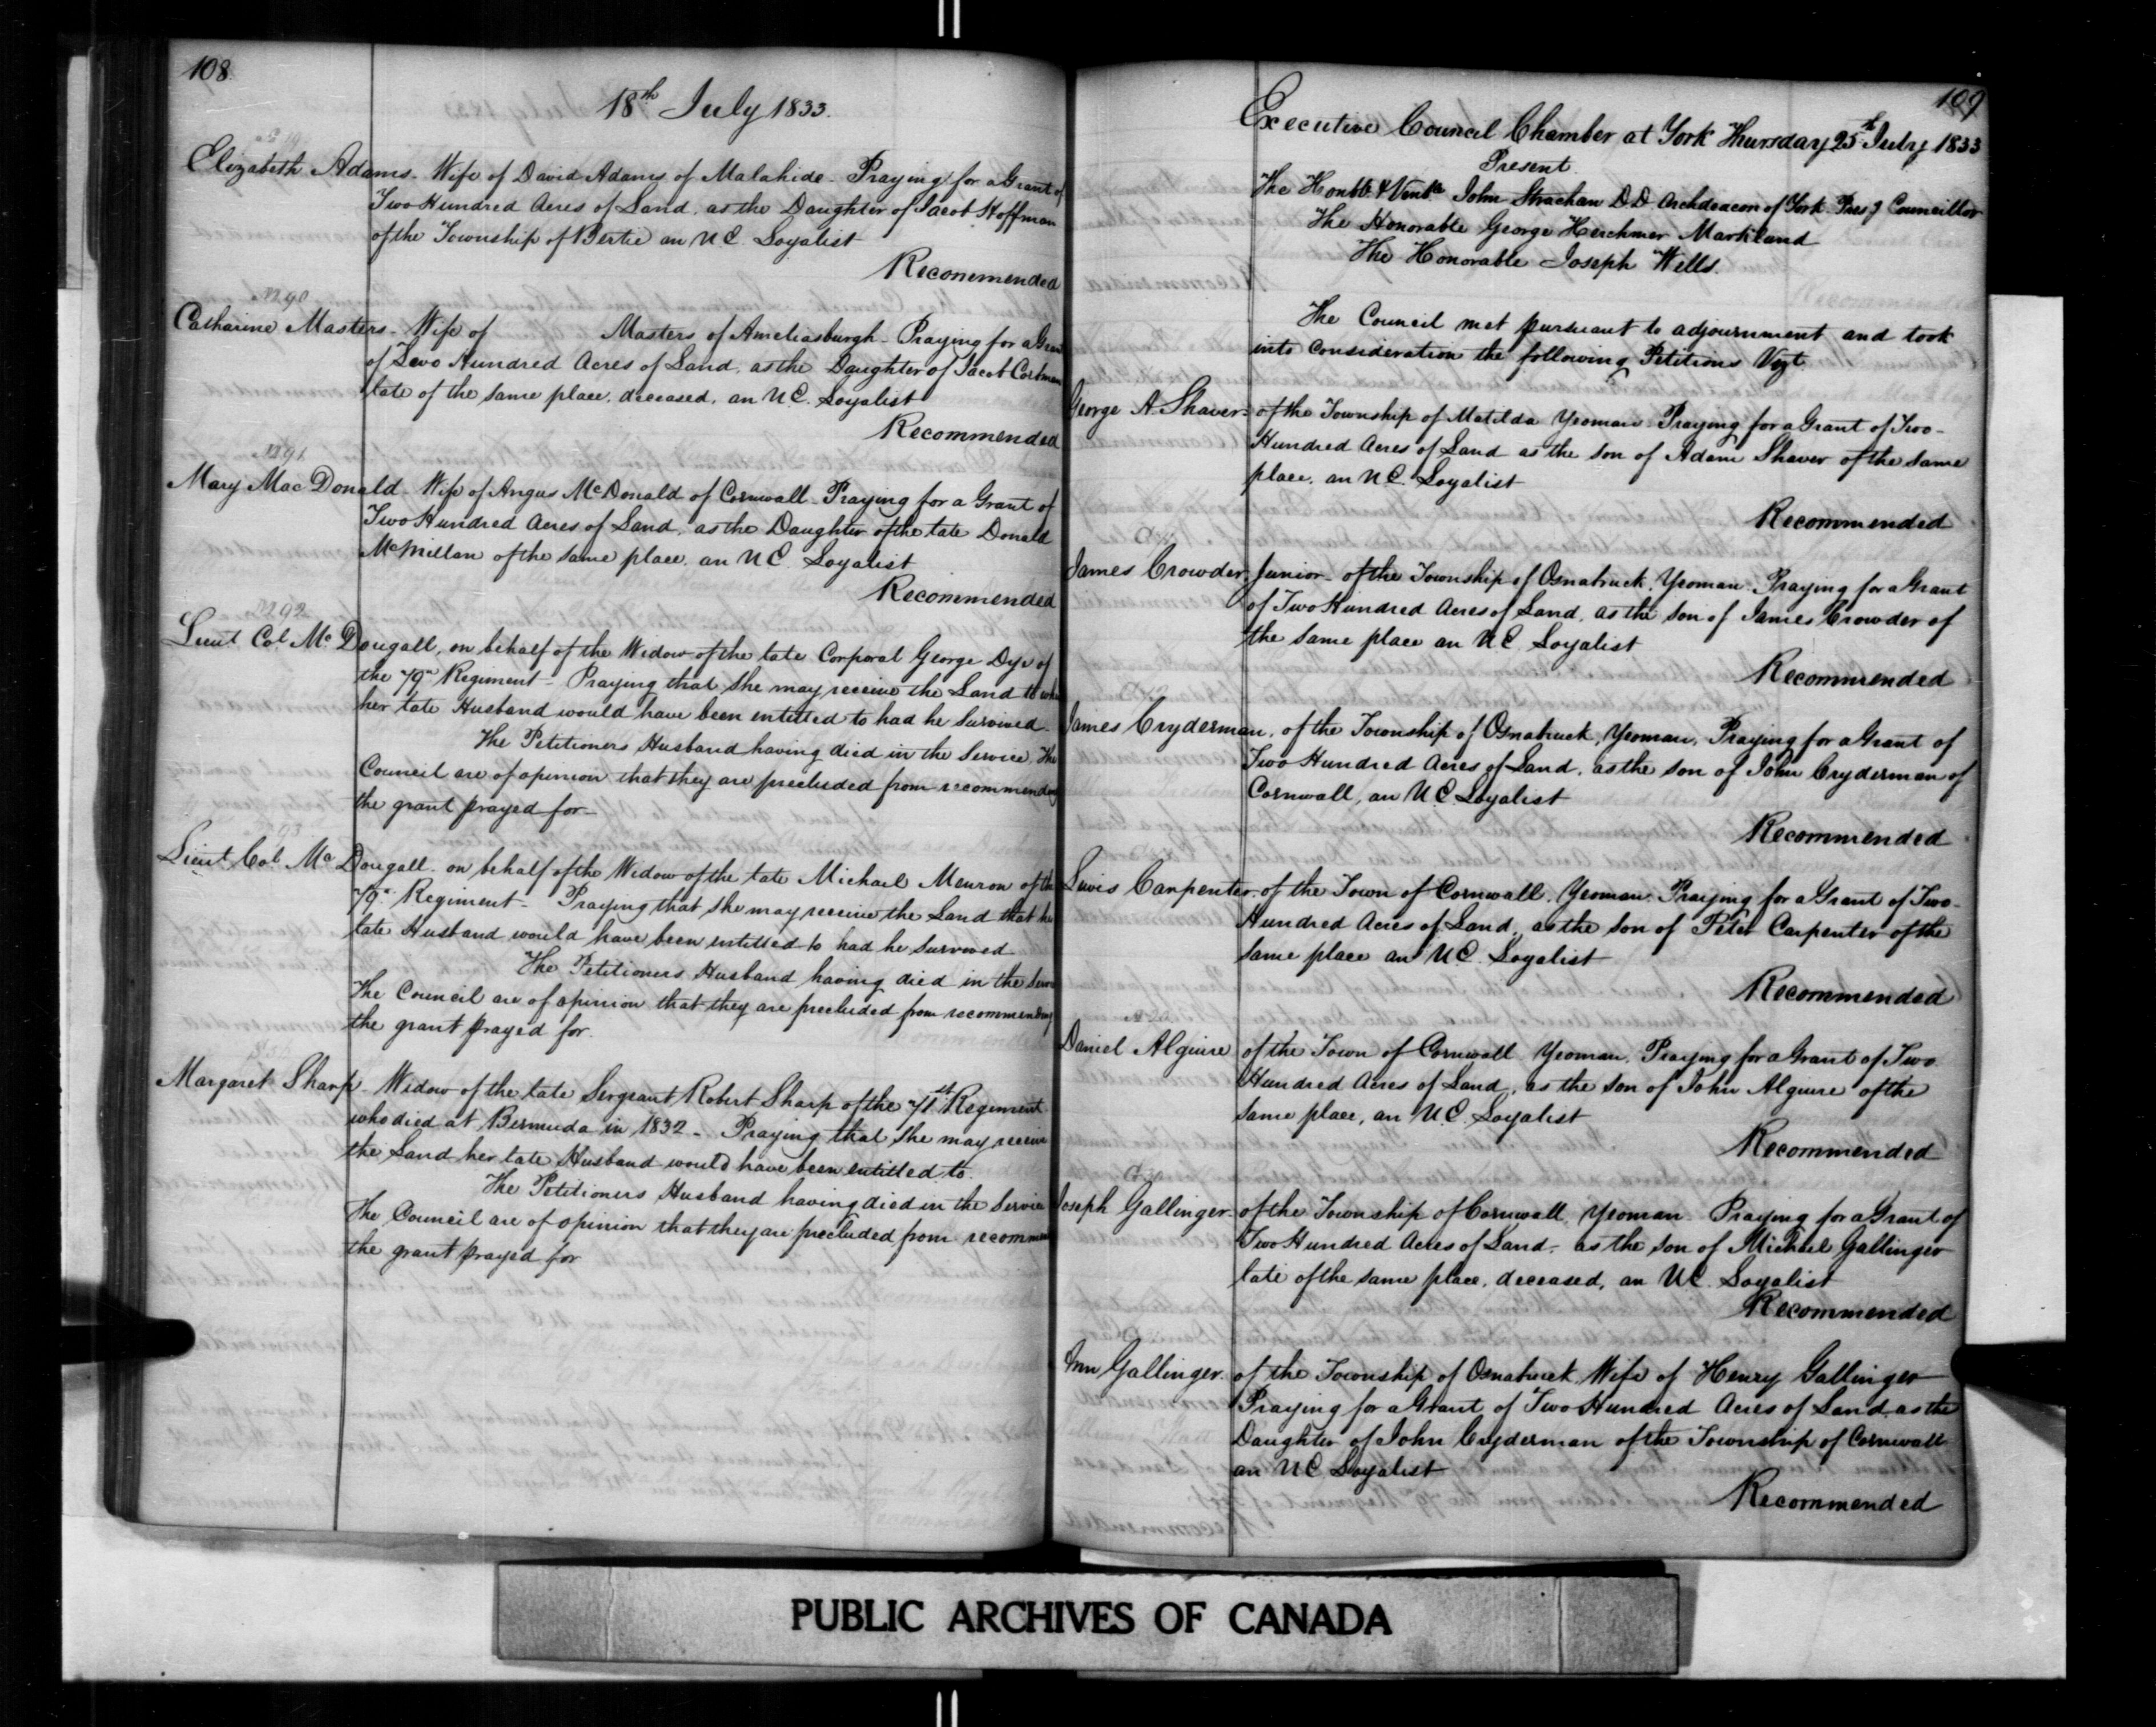 108
18th July 1833.
Elizabeth Adams - Wife of David Adams of Malahide - Praying for a Grant of
Two Hundred Acres of Land, as the Daughter of Jacob Hoffman
of the Township of Bertie an U.E. Loyalist
Recommended
Catharine Masters - Wife of Masters of Ameliasburgh - Praying for a Grant
of Two Hundred Acres of Land, as the Daughter of Jacob
late of the same place, deceased, an U.E. Loyalist
Recommended
Mary Mac Donald - Wife of Angus McDonald of Cornwall - Praying for a Grant of
Two Hundred Acres of Land, as the Daughter of the late Donald
McMillan of the same place, an U.E. Loyalist
Recommended
Lieut Col. Mc Dougall, on behalf of the Widow of the late Corporal George Dye of
the 79th Regiment - Praying that she may receive the Land to
her late Husband would have been entitled to had he survived
The Petitioners Husband having died in the Service, The
Council are of opinion that they are precluded from recommending
the grant prayed for -
Lieut Col. Mc Dougall - on behalf of the Widow of the late Michael of the
79th Regiment - Praying that she may receive the Land that her
late Husband would have been entitled to had he survived
The Petitioners Husband having died in the
The Council are of opinion that they are precluded from recommending
the grant prayed for.
Margaret Sharp - Widow of the late Sergeant Robert Sharp of the 71st Regiment
who died at Bermuda in 1832 - Praying that she may receive
the Land her late Husband would have been entitled to.
The Petitioners Husband having died in the Service
The Council are of opinion that they are precluded from
the grant prayed for
109
Executive Council Chamber at York Thursday 25th July 1833
Present
The Honble & Venble John Strachan DD Archdeacon of York Presg Councillor
The Honorable George Herchmer Markland
The Honorable Joseph Wells.
The Council met pursuant to adjournment and took
into consideration the following Petitions Vizt
George A. Shaver - of the Township of Matilda Yeoman - Praying for a Grant of Two-
Hundred Acres of Land as the son of Adam Shaver of the same
place, an U.E. Loyalist
Recommended
James Crowder, Junior - of the Township of Osnabruck, Yeoman - Praying for a Grant
of Two Hundred Acres of Land, as the son of James Crowder of
the same place an U.E. Loyalist
Recommended
James Cryderman, of the Township of Osnabruck, Yeoman, Praying for a Grant of
Two Hundred Acres of Land, as the son of John Cryderman of
Cornwall, an U.E. Loyalist
Recommended
Lewis Carpenter - of the Town of Cornwall, Yeoman - Praying for a Grant of Two-
Hundred Acres of Land, as the son of Peter Carpenter of the
same place an U.E. Loyalist
Recommended
Daniel Alguire of the Town of Cornwall Yeoman, Praying for a Grant of Two
Hundred Acres of Land, as the son of John Alguire of the
same place, an U.E. Loyalist
Recommended
Joseph Gallinger - of the Township of Cornwall, Yeoman - Praying for a Grant of
Two Hundred Acres of Land, as the son of Michael Gallinger
late of the same place, deceased, an U.E. Loyalist
Recommended
Ann Gallinger. of the Township of Osnabruck Wife of Henry Gallinger
Praying for a Grant of Two Hundred Acres of Land, as the
Daughter of John Cryderman of the Township of Cornwall
an U.E. Loyalist
Recommended
PUBLIC ARCHIVES OF CANADA